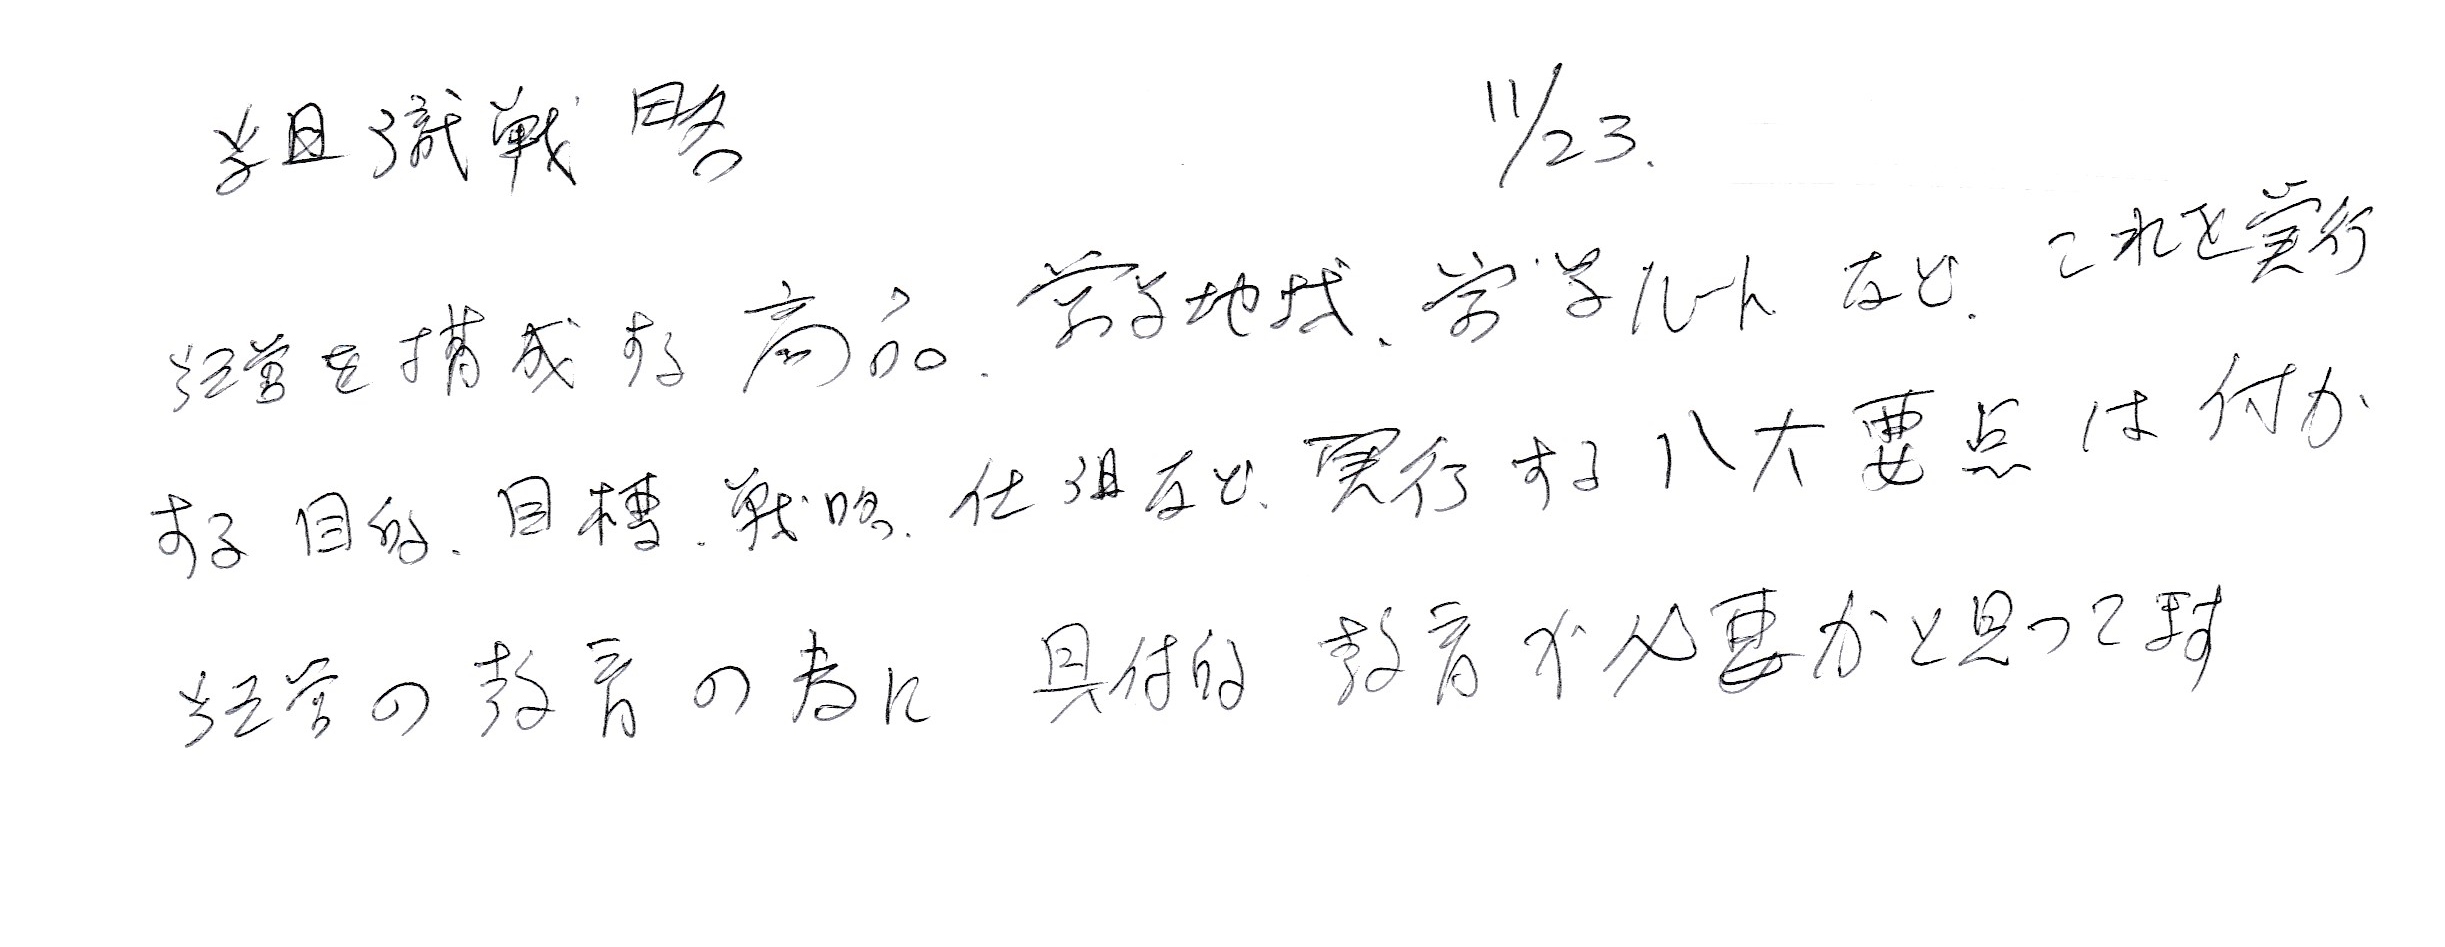 組織戦略 11/23.
経営を構成する商品、営業地域、営業ルートなど、これを実行
する目的、目標、戦略、仕組など、実行する八大要点は何か
経営の教育の為に 具体的 教育が必要かと思ってます